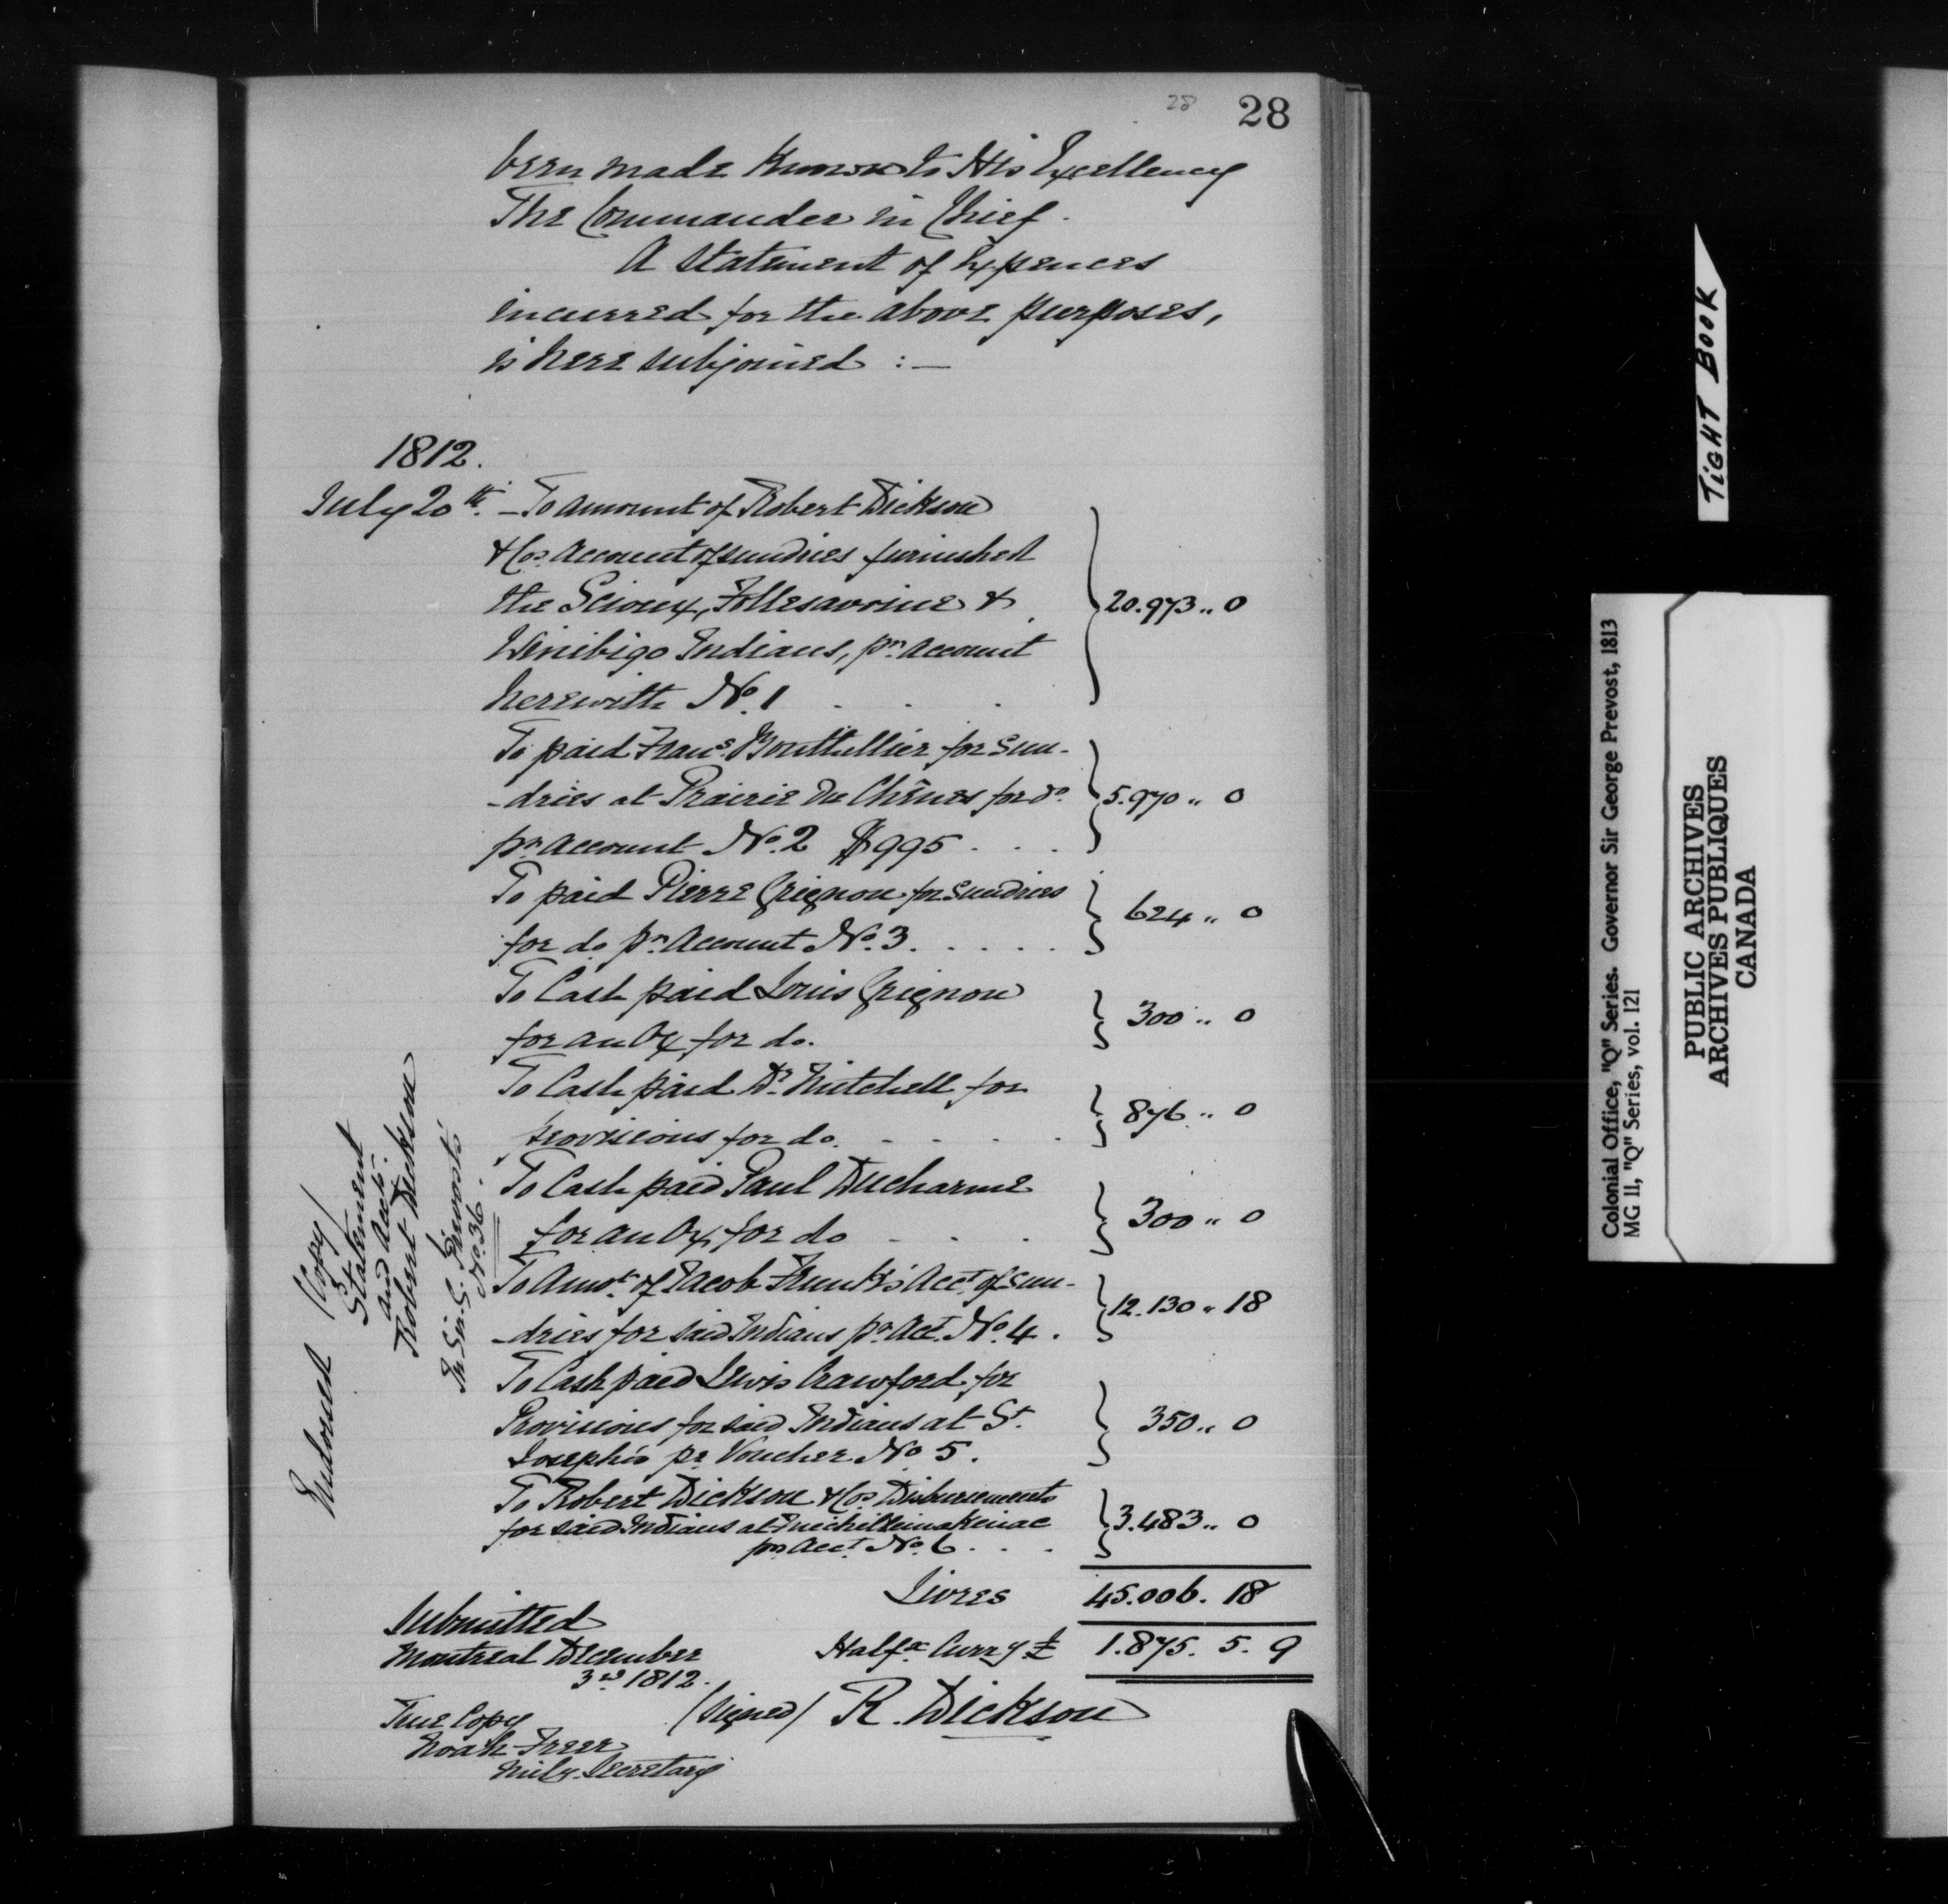 28 28
been made Known to His Excellency
The Commander in Chief.
A Statement of Expences
incurred for the above purposes,
is here subjoined :—
1812.
July 20th. — To amount of Robert Dickson
& Cos. Account of sundries furnished
the Scioux, Follesavoine &
Winibigo Indians, pr. Account
herewith No. 1 . . . 20.973 .. 0
To paid Frans. Bouthillier for Sun-
-dries at Prairie du Chênes for do.
pr. Account No. 2 $995 . . . 5.970 .. 0
To paid Pierre Grignon for Sundries
for do. pr. Account No. 3. . . . . 624 .. 0
To Cash paid Louis Grignon
for an Ox for do. 300 .. 0
To Cash paid Dr. Mitchell for
provisions for do. - - - . 876 .. 0
To Cash paid Paul Ducharme
for an Ox for do - . . 300 .. 0
To Amot. of Jacob Frank's Acct. of sun-
-dries for said Indians pr. Acct. No. 4 . 12.130 .. 18
To Cash paid Lewis Crawford for
Provisions for said Indians at St.
Joseph's pr. Voucher No. 5. 350 .. 0
To Robert Dickson & Cos. Disbursements
for said Indians at Michillimakinac
pr. Acct. No. 6 . . . 3.483 .. 0
Livres 45.006. 18
Halfx. Curry £ 1.875. 5. 9
Submitted
Montreal December
3rd. 1812.
(Signed) R. Dickson
True Copy
Noah Freer
Mily. Secretary
Endorsed (Copy)
Statement
and Accts.
Robert Dickson
In Sir G. Prevosts'
No. 36.
TIGHT BOOK
Colonial Office, "Q" Series. Governor Sir George Prevost, 1813
MG 11, "Q" Series, vol. 121
PUBLIC ARCHIVES
ARCHIVES PUBLIQUES
CANADA